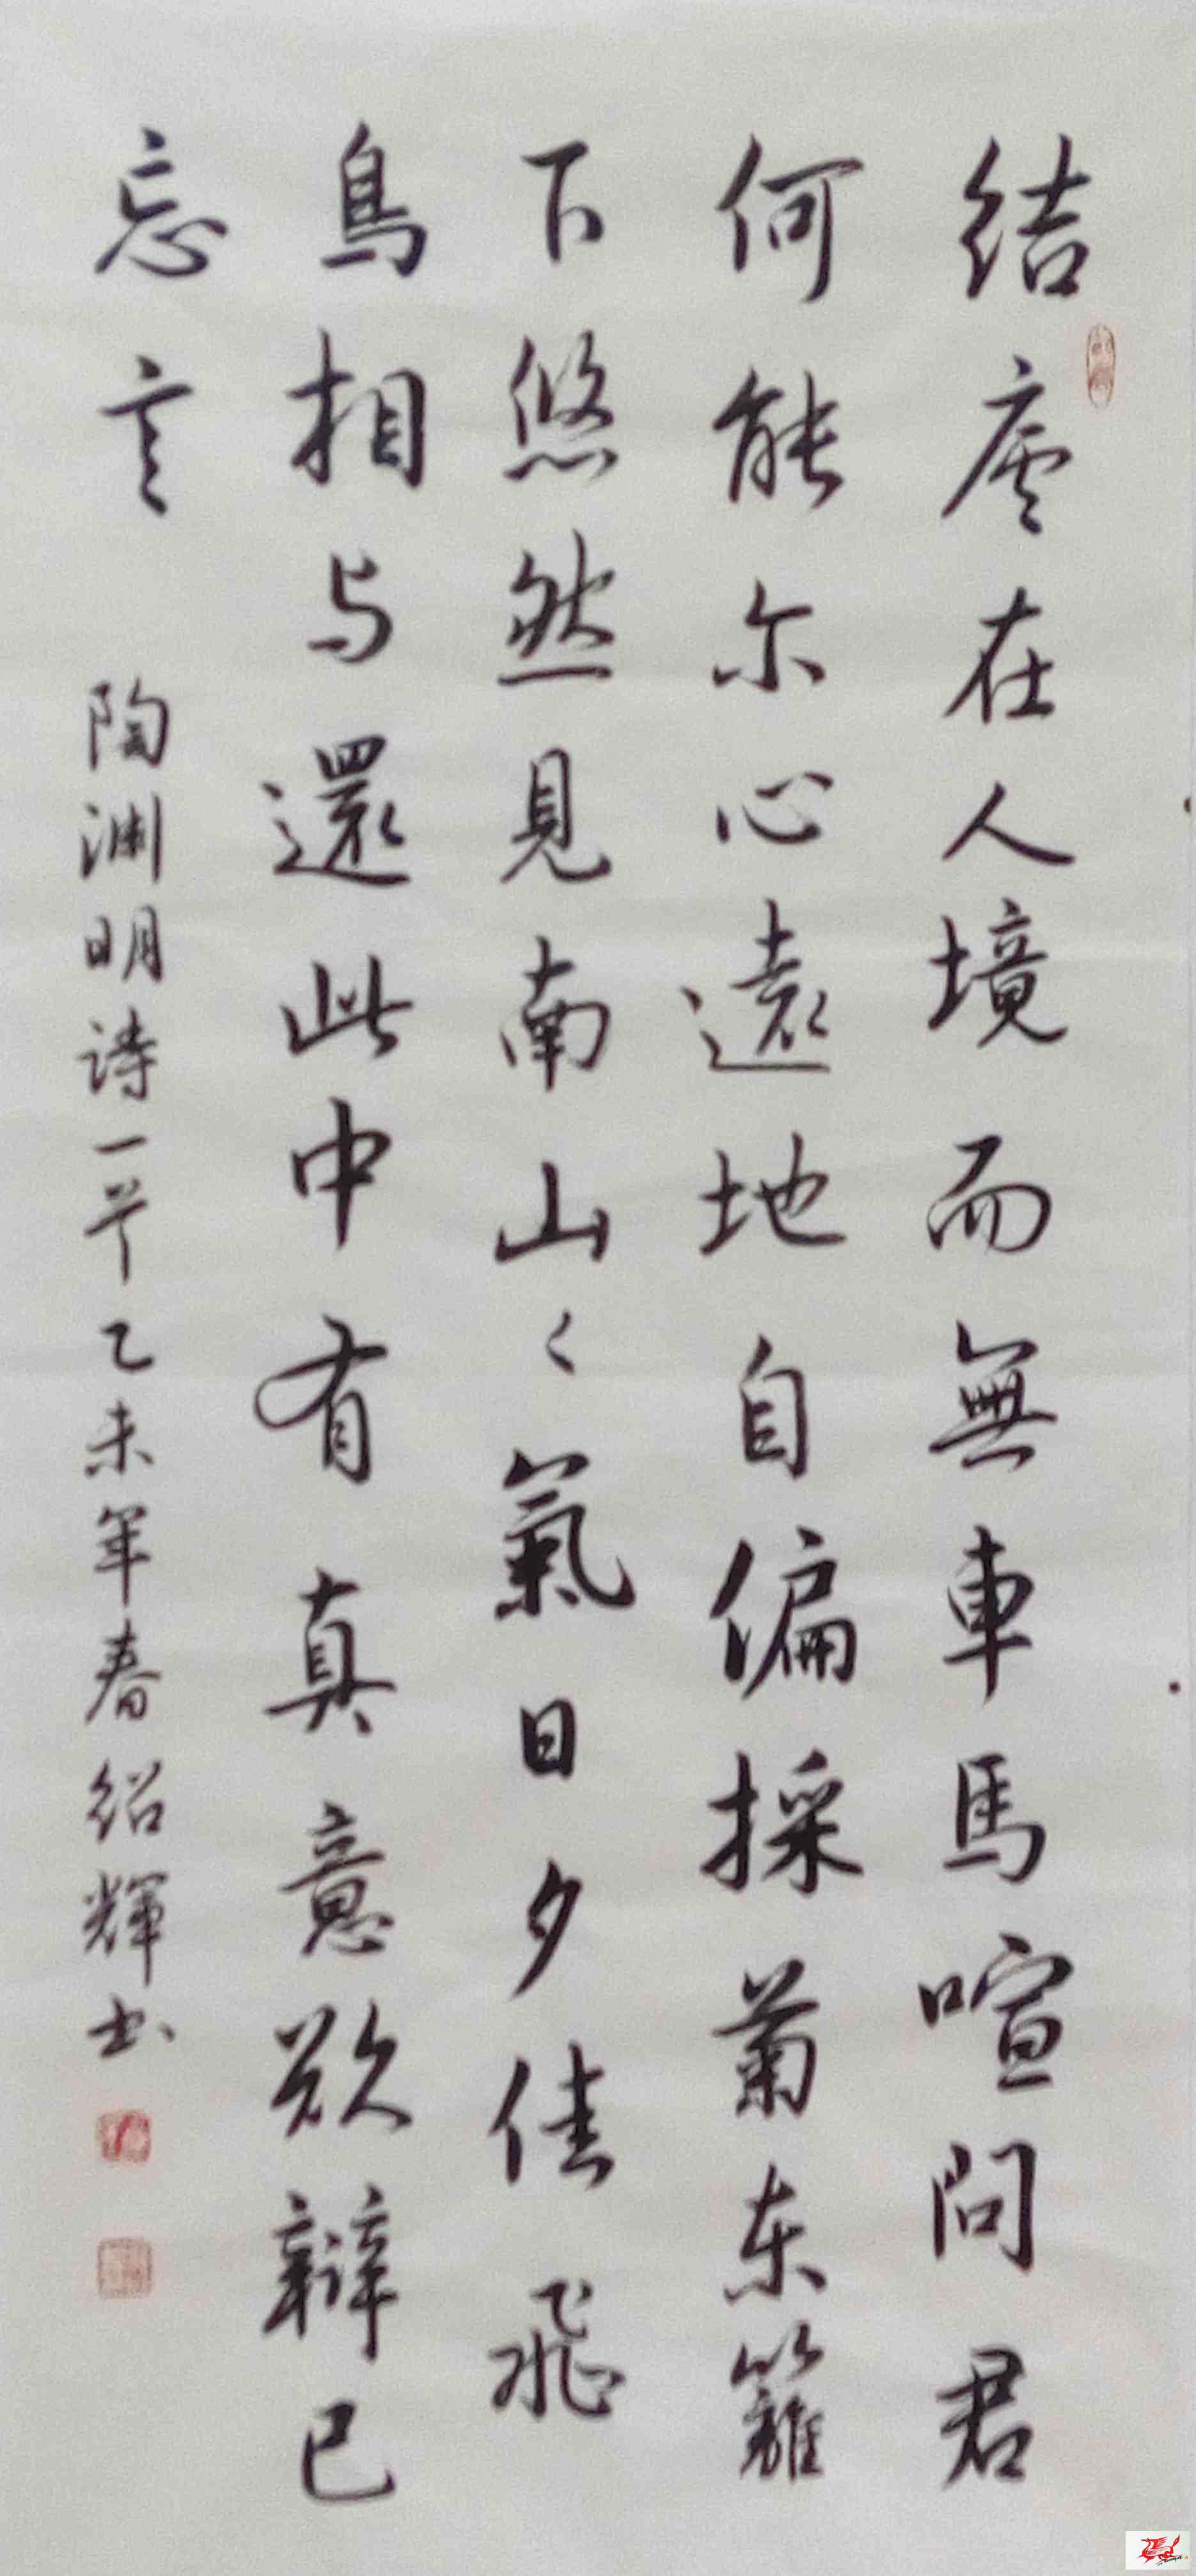 结庐在人境而無車馬喧问君
何能尔心遠地自偏採菊东籬
下悠然見南山々氣日夕佳飛
鳥相与還此中有真意欲辯已
忘言
陶渊明诗一首乙未年春绍輝书